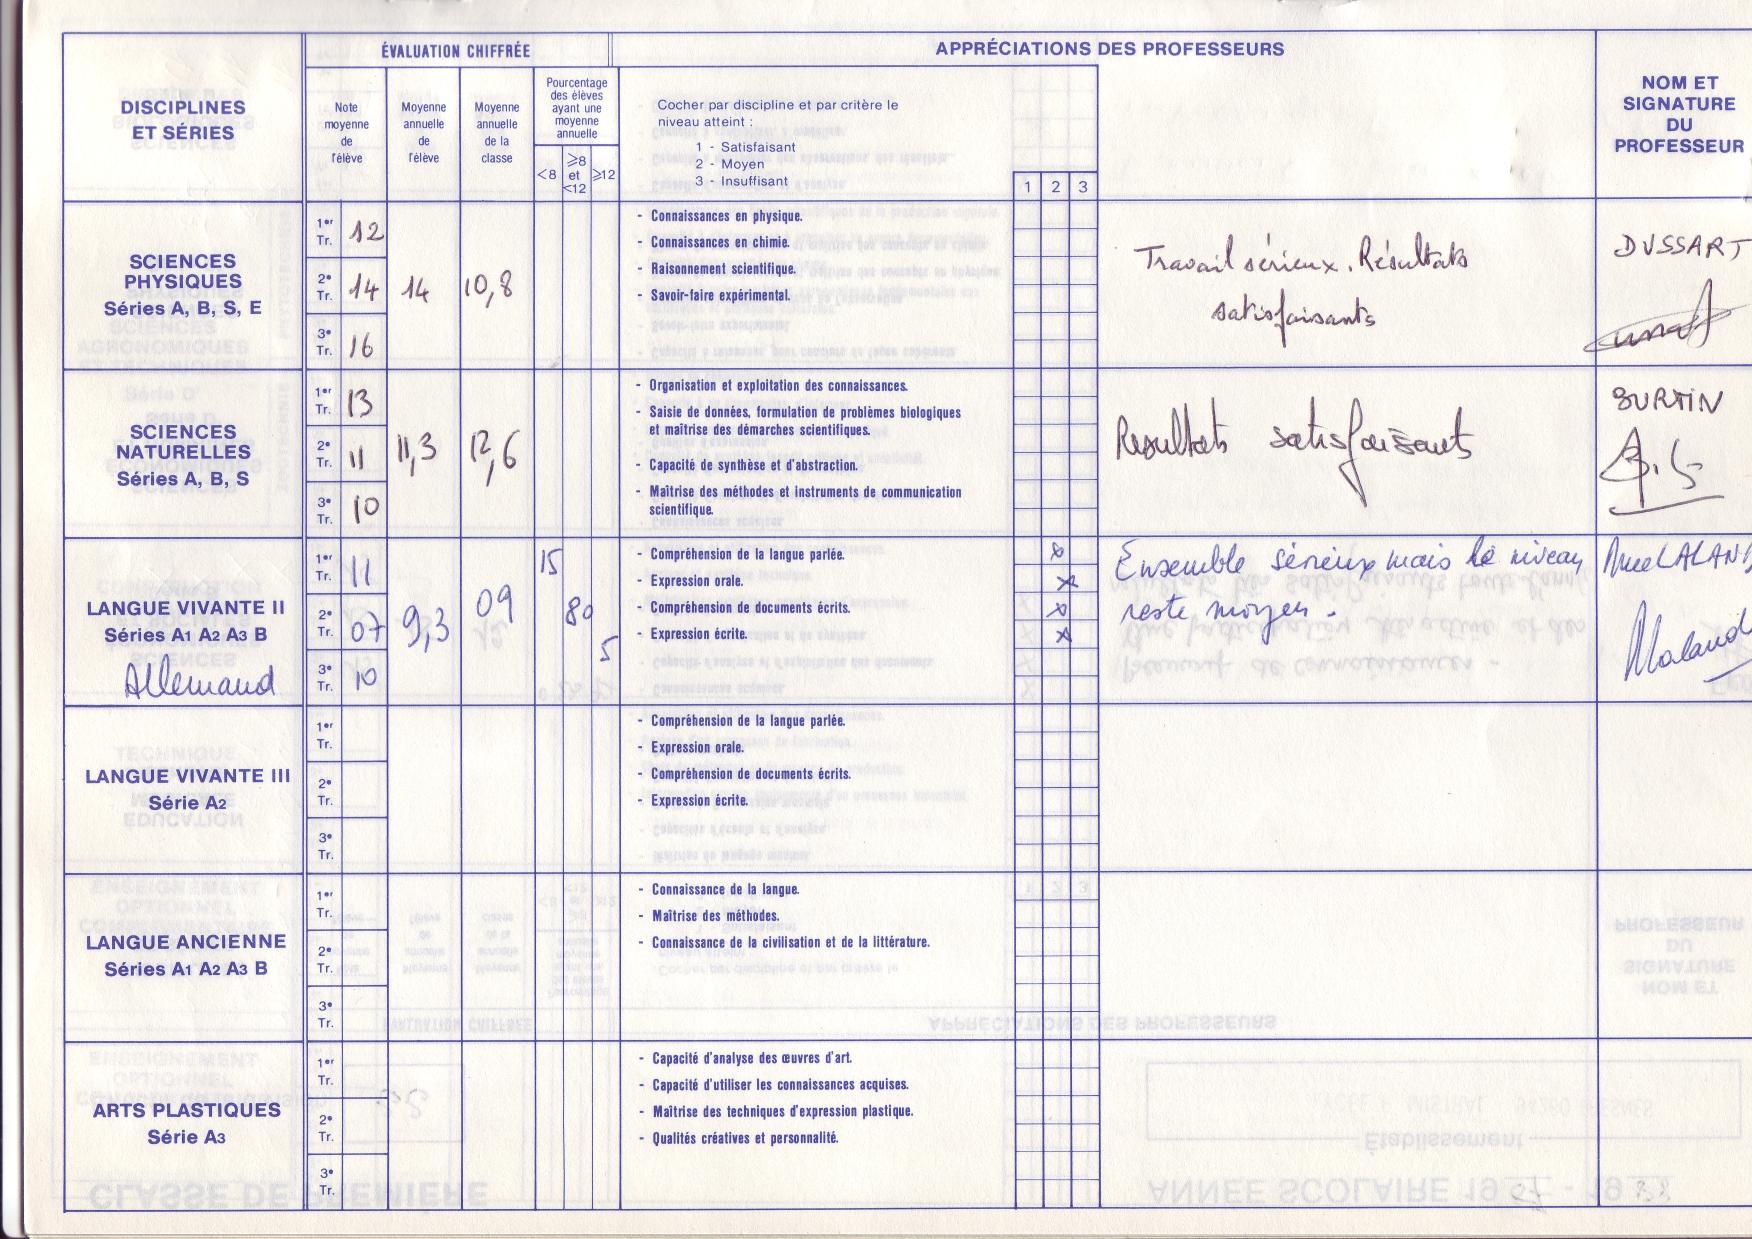 ÉVALUATION CHIFFRÉE
APPRÉCIATIONS DES PROFESSEURS
DISCIPLINES
ET SÉRIES
Note
moyenne
de
l'élève
Moyenne
annuelle
de
l'élève
Moyenne
annuelle
de la
classe
Pourcentage
des élèves
ayant une
moyenne
annuelle
<8
≥8
et
<12
≥12
Cocher par discipline et par critère le
niveau atteint :
1 - Satisfaisant
2 - Moyen
3 - Insuffisant
1 2 3
NOM ET
SIGNATURE
DU
PROFESSEUR
SCIENCES
PHYSIQUES
Séries A, B, S, E
1er
Tr. 12
2e
Tr. 14 14 10,8
3e
Tr. 16
- Connaissances en physique.
- Connaissances en chimie.
- Raisonnement scientifique.
- Savoir-faire expérimental.
Travail sérieux. Résultats
satisfaisants
DUSSART
SCIENCES
NATURELLES
Séries A, B, S
1er
Tr. 13
2e
Tr. 11 11,3 12,6
3e
Tr. 10
- Organisation et exploitation des connaissances.
- Saisie de données, formulation de problèmes biologiques
et maîtrise des démarches scientifiques.
- Capacité de synthèse et d'abstraction.
- Maîtrise des méthodes et instruments de communication
scientifique.
Resultats satisfaisants
BURTIN
LANGUE VIVANTE II
Séries A1 A2 A3 B
Allemand
1er
Tr. 11
2e
Tr. 07 9,3 09
3e
Tr. 10
15 80 5
- Compréhension de la langue parlée. x
- Expression orale. x
- Compréhension de documents écrits. x
- Expression écrite. x
Ensemble sérieux mais le niveau
reste moyen.
LANGUE VIVANTE III
Série A2
1er
Tr.
2e
Tr.
3e
Tr.
- Compréhension de la langue parlée.
- Expression orale.
- Compréhension de documents écrits.
- Expression écrite.
LANGUE ANCIENNE
Séries A1 A2 A3 B
1er
Tr.
2e
Tr.
3e
Tr.
- Connaissance de la langue.
- Maîtrise des méthodes.
- Connaissance de la civilisation et de la littérature.
ARTS PLASTIQUES
Série A3
1er
Tr.
2e
Tr.
3e
Tr.
- Capacité d'analyse des œuvres d'art.
- Capacité d'utiliser les connaissances acquises.
- Maîtrise des techniques d'expression plastique.
- Qualités créatives et personnalité.